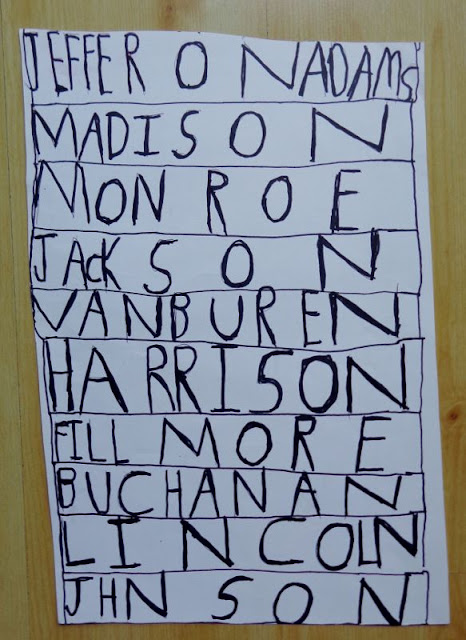 JEFFER O NADAMS
MADISON
MONROE
JACKSON
VANBUREN
HARRISON
FILLMORE
BUCHANAN
LINCOLN
JHNSON